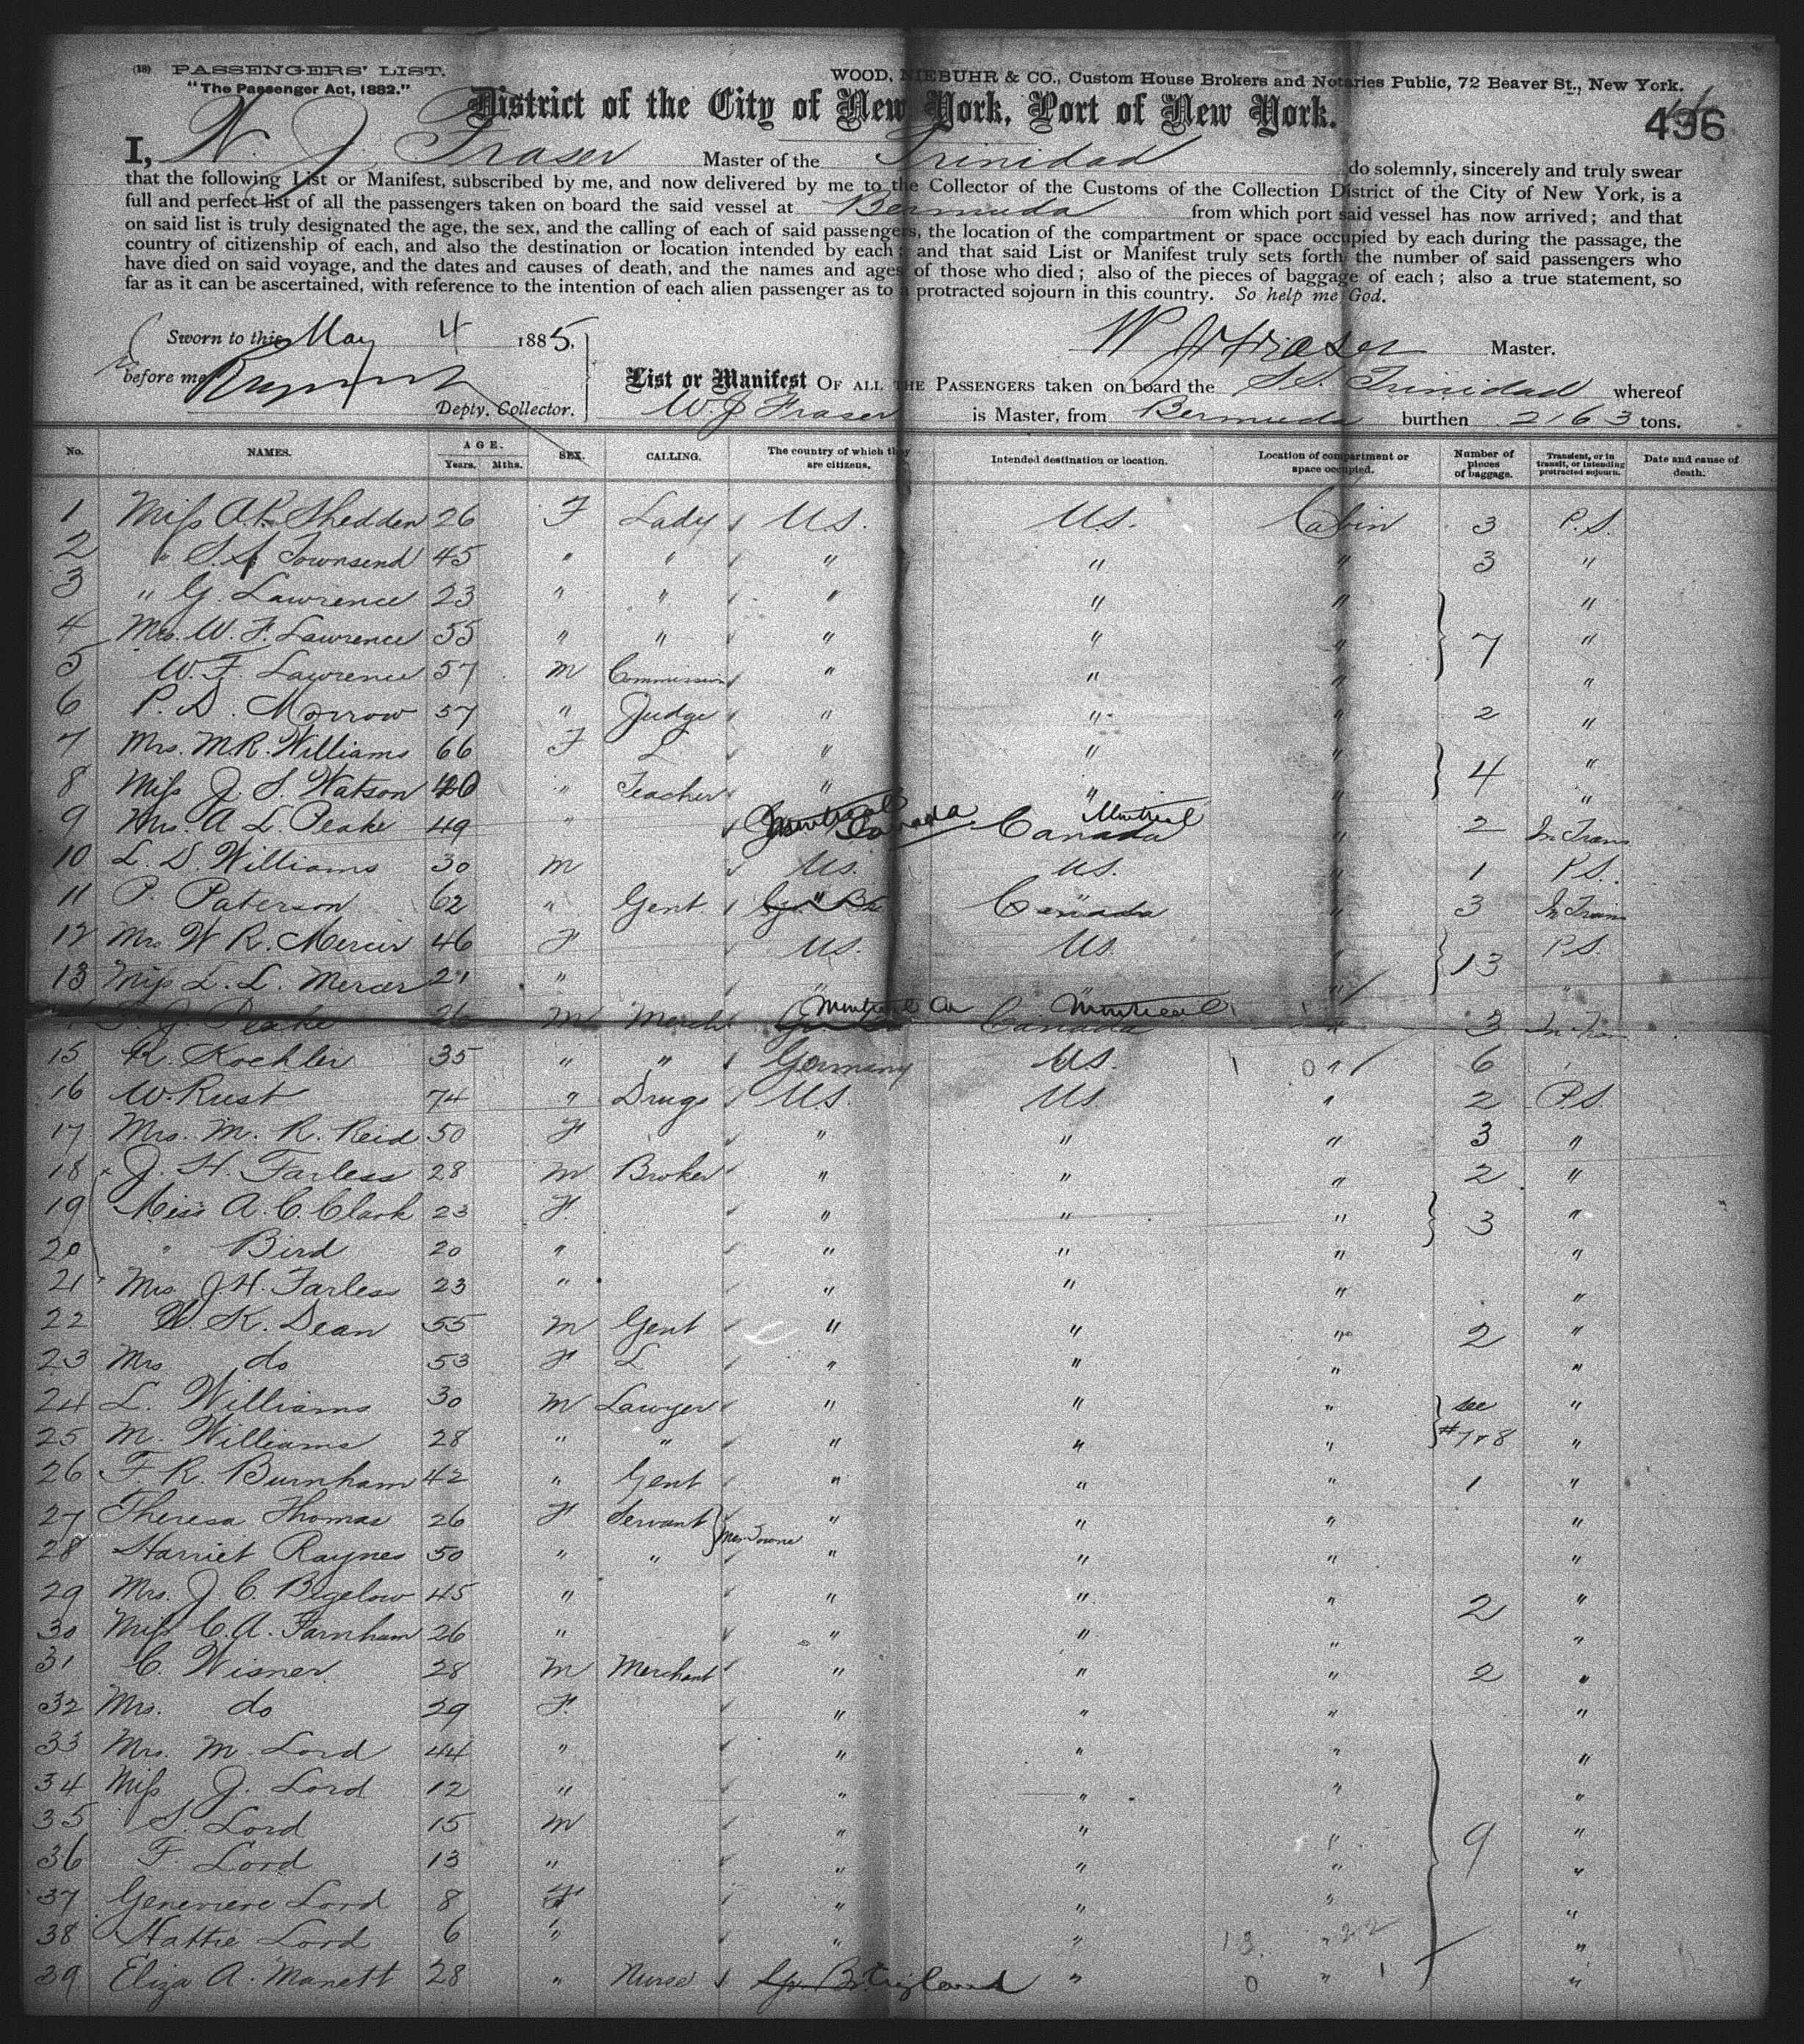 (18) PASSENGERS' LIST.
"The Passenger Act, 1882."
WOOD, NIEBUHR & CO., Custom House Brokers and Notaries Public, 72 Beaver St., New York.
District of the City of New York, Port of New York.
436
I, W. J. Fraser Master of the Trinidad do solemnly, sincerely and truly swear
that the following List or Manifest, subscribed by me, and now delivered by me to the Collector of the Customs of the Collection District of the City of New York, is a
full and perfect list of all the passengers taken on board the said vessel at Bermuda from which port said vessel has now arrived; and that
on said list is truly designated the age, the sex, and the calling of each of said passengers, the location of the compartment or space occupied by each during the passage, the
country of citizenship of each, and also the destination or location intended by each; and that said List or Manifest truly sets forth the number of said passengers who
have died on said voyage, and the dates and causes of death, and the names and ages of those who died; also of the pieces of baggage of each; also a true statement, so
far as it can be ascertained, with reference to the intention of each alien passenger as to a protracted sojourn in this country. So help me God.
Sworn to this May 4 1885,
W J Fraser Master.
before me
Depty. Collector.
List or Manifest OF ALL THE PASSENGERS taken on board the S.S. Trinidad whereof
W. J Fraser is Master, from Bermuda burthen 2163 tons.
No. NAMES. AGE. Years. Mths. SEX. CALLING. The country of which they are citizens. Intended destination or location. Location of compartment or space occupied. Number of pieces of baggage. Transient, or in transit, or intending protracted sojourn. Date and cause of death.
1 Miss A.P. Shedden 26 F Lady U.S. U.S. Cabin 3 P.S.
2 " S.S. Townsend 45 " " " " " 3 "
3 " G. Lawrence 23 " " " " " "
4 Mrs. W. F. Lawrence 55 " " " " " 7 "
5 W. F. Lawrence 57 M Commission " " " "
6 P. D. Morrow 57 " Judge " " " 2 "
7 Mrs. M.R. Williams 66 F L " " " 4 "
8 Miss J. S. Watson 40 " Teacher " " " "
9 Mrs. A L. Peake 49 " Montreal Canada Montreal Canada " 2 In Trans
10 L. D. Williams 30 M U.S. U.S. " 1 P.S.
11 P. Paterson 62 " Gent Gr. Br. Canada " 3 In Trans
12 Mrs W R. Mercer 46 F U.S. U.S. " 13 P.S.
13 Miss L. L. Mercer 21 " " " " "
J. Peake 26 M Merch Montreal Ca Montreal Canada " 3 In Tran
15 R. Koehler 35 " " Germany U.S. " 6
16 W. Rust 74 " Drugs U.S. U.S. " 2 P.S.
17 Mrs. M. R. Reid 50 F " " " 3 "
18 J. H. Farless 28 M Broker " " " 2 "
19 Miss A. C. Clark 23 F. " " " 3 "
20 " Bird 20 " " " " "
21 Mrs J.H. Farless 23 " " " " "
22 W. K. Dean 55 M Gent " " " 2 "
23 Mrs do 53 F L " " " "
24 L. Williams 30 M Lawyer " " " see "
25 M. Williams 28 " " " " " #7 & 8 "
26 F. R. Burnham 42 " Gent " " " 1 "
27 Theresa Thomas 26 F Servant " " " "
28 Harriet Raynes 50 " " " " " "
29 Mrs. J. C. Bigelow 45 " " " " 2 "
30 Miss C. A. Farnham 26 " " " " "
31 C. Wisner 28 M Merchant " " " 2 "
32 Mrs. do 29 F. " " " "
33 Mrs. M. Lord 44 " " " " "
34 Miss J. Lord 12 " " " " "
35 S. Lord 15 M " " " "
36 F. Lord 13 " " " " 9 "
37 Genevieve Lord 8 F " " " "
38 Hattie Lord 6 " " " " "
39 Eliza A. Manett 28 " Nurse Gr. Br. England " " "